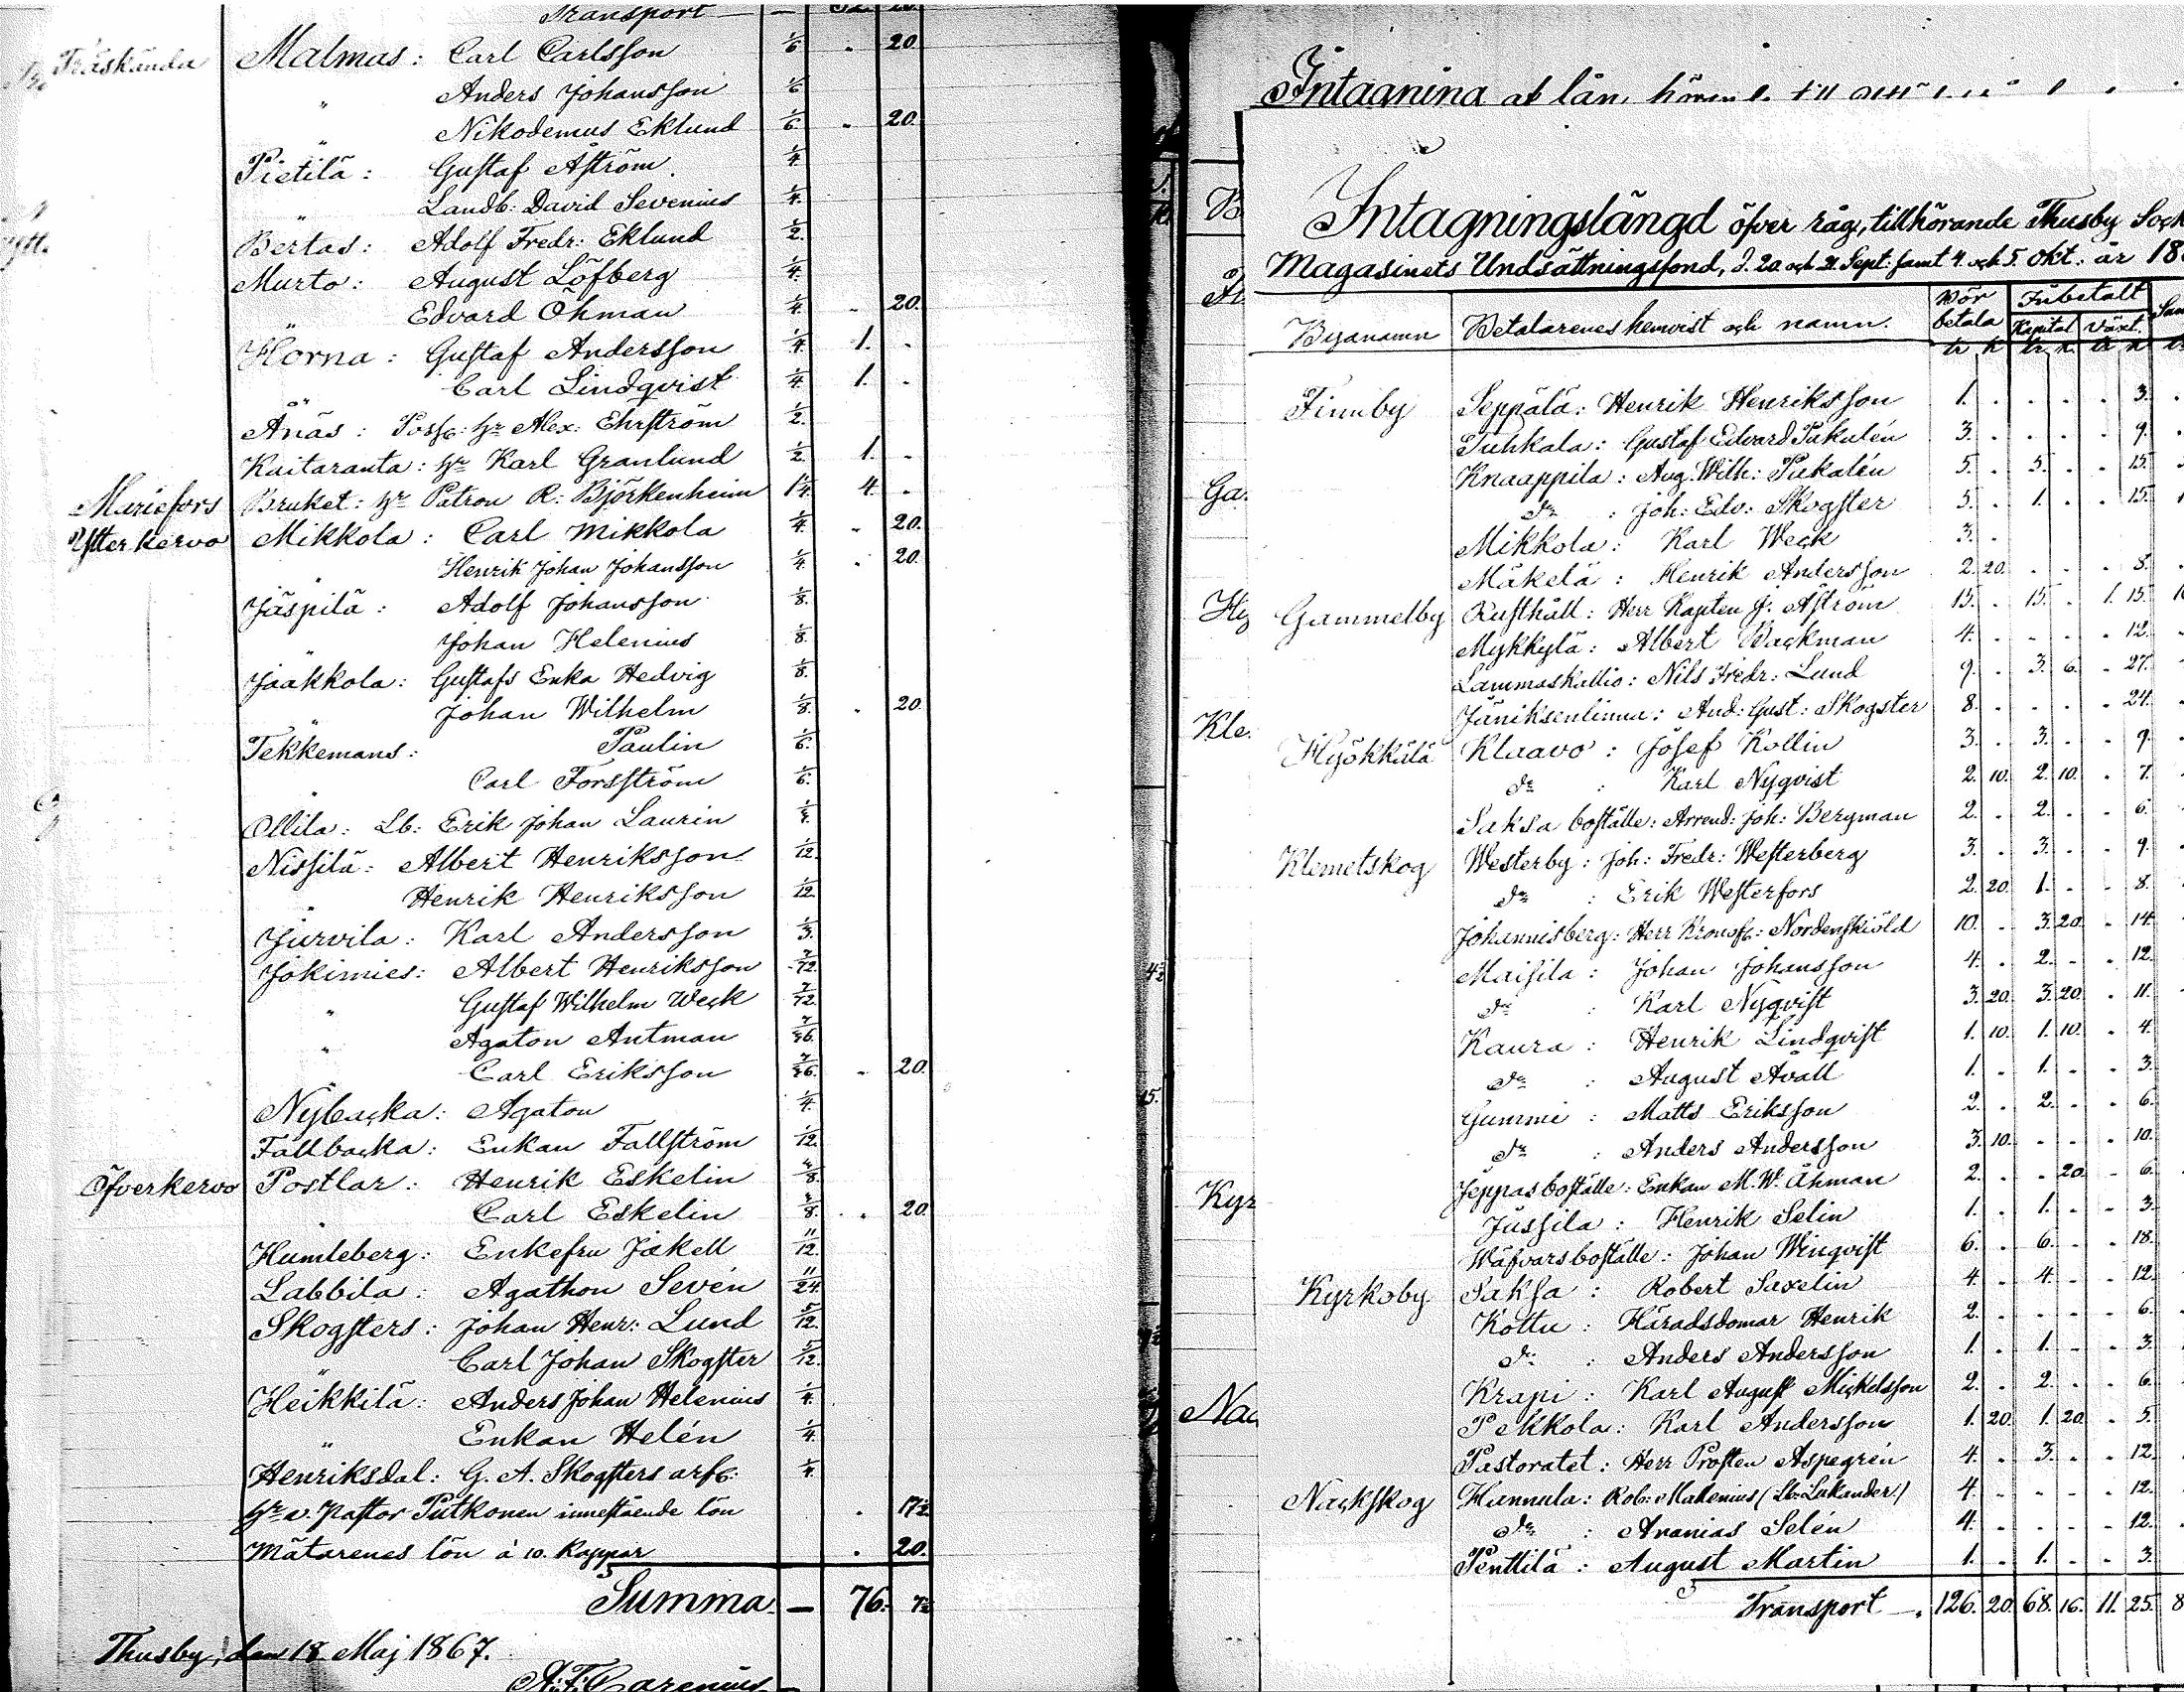 Transport —
Träskända Malmas: Carl Carlsson 1/6 . 20
" Anders Johansson 1/6
" Nikodemus Eklund 1/6 . 20.
Pietilä: Gustaf Åström. 1/4.
" Landb: David Sevenius 1/4.
Bertas: Adolf Fredr: Eklund 1/2.
Murto: August Löfberg 1/4.
Edvard Öhman 1/4. . 20.
Horna: Gustaf Andersson 1/4. 1. .
" Carl Lindqvist 1/4. 1. .
Ånäs: Possr: Hr Alex: Ehrström 1/2.
Kaitaranta: Hr Karl Granlund 1/2. 1. .
Mariefors Bruket: Hr Patron R: Björkenheim 1 1/4. 4. .
Ytterkervo Mikkola: Carl Mikkola 1/4. . 20.
" Henrik Johan Johansson 1/4. . 20.
Jäspilä: Adolf Johansson 1/8.
" Johan Helenius 1/8.
Jaakkola: Gustafs Enka Hedvig 1/8.
" Johan Wilhelm 1/8. . 20.
Tekkemans: Paulin 1/6.
" Carl Forsström 1/6.
Ollila: Lb: Erik Johan Laurin
Nissilä: Albert Henriksson 1/12.
" Henrik Henriksson 1/12.
Jurvila: Karl Andersson 1/3.
Jokimies: Albert Henriksson 7/72.
" Gustaf Wilhelm Weck 7/72.
" Agaton Antman
" Carl Eriksson . 20.
Nybacka: Agaton 1/4.
Fallbacka: Enkan Fallström 1/12.
Öfverkervo Postlar: Henrik Eskelin
" Carl Eskelin . 20.
Humleberg: Enkefru Jakell 11/12.
Labbila: Agathon Sevén 11/24.
Skogsters: Johan Henr: Lund 5/12.
" Carl Johan Skogster 5/12.
Heikkilä: Anders Johan Helenius 1/4.
" Enkan Helén 1/4.
Henriksdal: G. A. Skogsters arfv: 1/4.
Hr v. Pastor Putkonen innestående lön . 17 1/2.
Mätarenes lön à 10. Kappar . 20.
Summa. — 76. 7 1/2
Thusby, den 18 Maj 1867.
A. F. Carenius
Intagning af lån,
Intagningslängd öfver råg, tillhörande Thusby Sock
Magasinets Undsättningsfond, d. 20 och 21 Sept: samt 4 och 5. Okt: år 18
Byanamn Betalarenes hemvist och namn. Bör betala Inbetalt
Kapital Växt.
tr k tr k. tr k
Finnby Seppälä: Henrik Henriksson 1. . . . . 3.
Tuhkala: Gustaf Edvard Tukulén 3. . . . . 9.
Knaappila: Aug. Wilh: Tukalén 5. . 5. . . 15.
dn : Joh: Edv: Skogster 5. . 1. . . 15.
Mikkola: Karl Weck 3. .
Mäkelä: Henrik Andersson 2. 20. . . . 8.
Gammelby Rusthåll: Herr Kapten J. Åström 15. . 15. . 1. 15.
Mykkylä: Albert Backman 4. . . . . 12.
Lammaskallio: Nils Fredr: Lund 9. . 3. 6. . 27.
Jäniksenlinna: And: Gust: Skogster 8. . . . . 24.
Hyökkälä Klaavo: Josef Kollin 3. . 3. . . 9.
dn : Karl Nyqvist 2. 10. 2. 10. . 7.
Saksa boställe: Arrend: Joh: Bergman 2. . 2. . . 6.
Klemetskog Westerby: Joh: Fredr: Westerberg 3. . 3. . . 9.
dn : Erik Westerfors 2. 20. 1. . . 8.
Johannisberg: Herr Kronof: Nordenskiöld 10. . 3. 20. . 14.
Maisila: Johan Johansson 4. . 2. . . 12.
dn : Karl Nyqvist 3. 20. 3. 20. . 11.
Kaura: Henrik Lindqvist 1. 10. 1. 10. . 4.
dn : August Avall 1. . 1. . . 3.
Gummi: Matts Eriksson 2. . 2. . . 6.
dn : Anders Andersson 3. 10. . . . 10.
Jeppas boställe: Enkan M. W. Åhman 2. . . 20. . 6.
Jussila: Henrik Selin 1. . 1. . . 3.
Wäfvarsboställe: Johan Winqvist 6. . 6. . . 18.
Kyrkoby Saksa: Robert Saxelin 4. . 4. . . 12.
Kottu: Häradsdomar Henrik 2. . . . . 6.
dn : Anders Andersson 1. . 1. . . 3.
Krapi: Karl August Mickelsson 2. . 2. . . 6.
Pekkola: Karl Andersson 1. 20. 1. 20. . 5.
Pastoratet: Herr Prosten Aspegrén 4. . 3. . . 12.
Nackskog Hannula: Rob: Malenius (Lb: Lukander.) 4. . . . . 12.
dn : Ananias Selén 4. . . . . 12.
Penttilä: August Martin 1. . 1. . . 3.
Transport — 126. 20. 68. 16. 11. 25. 8